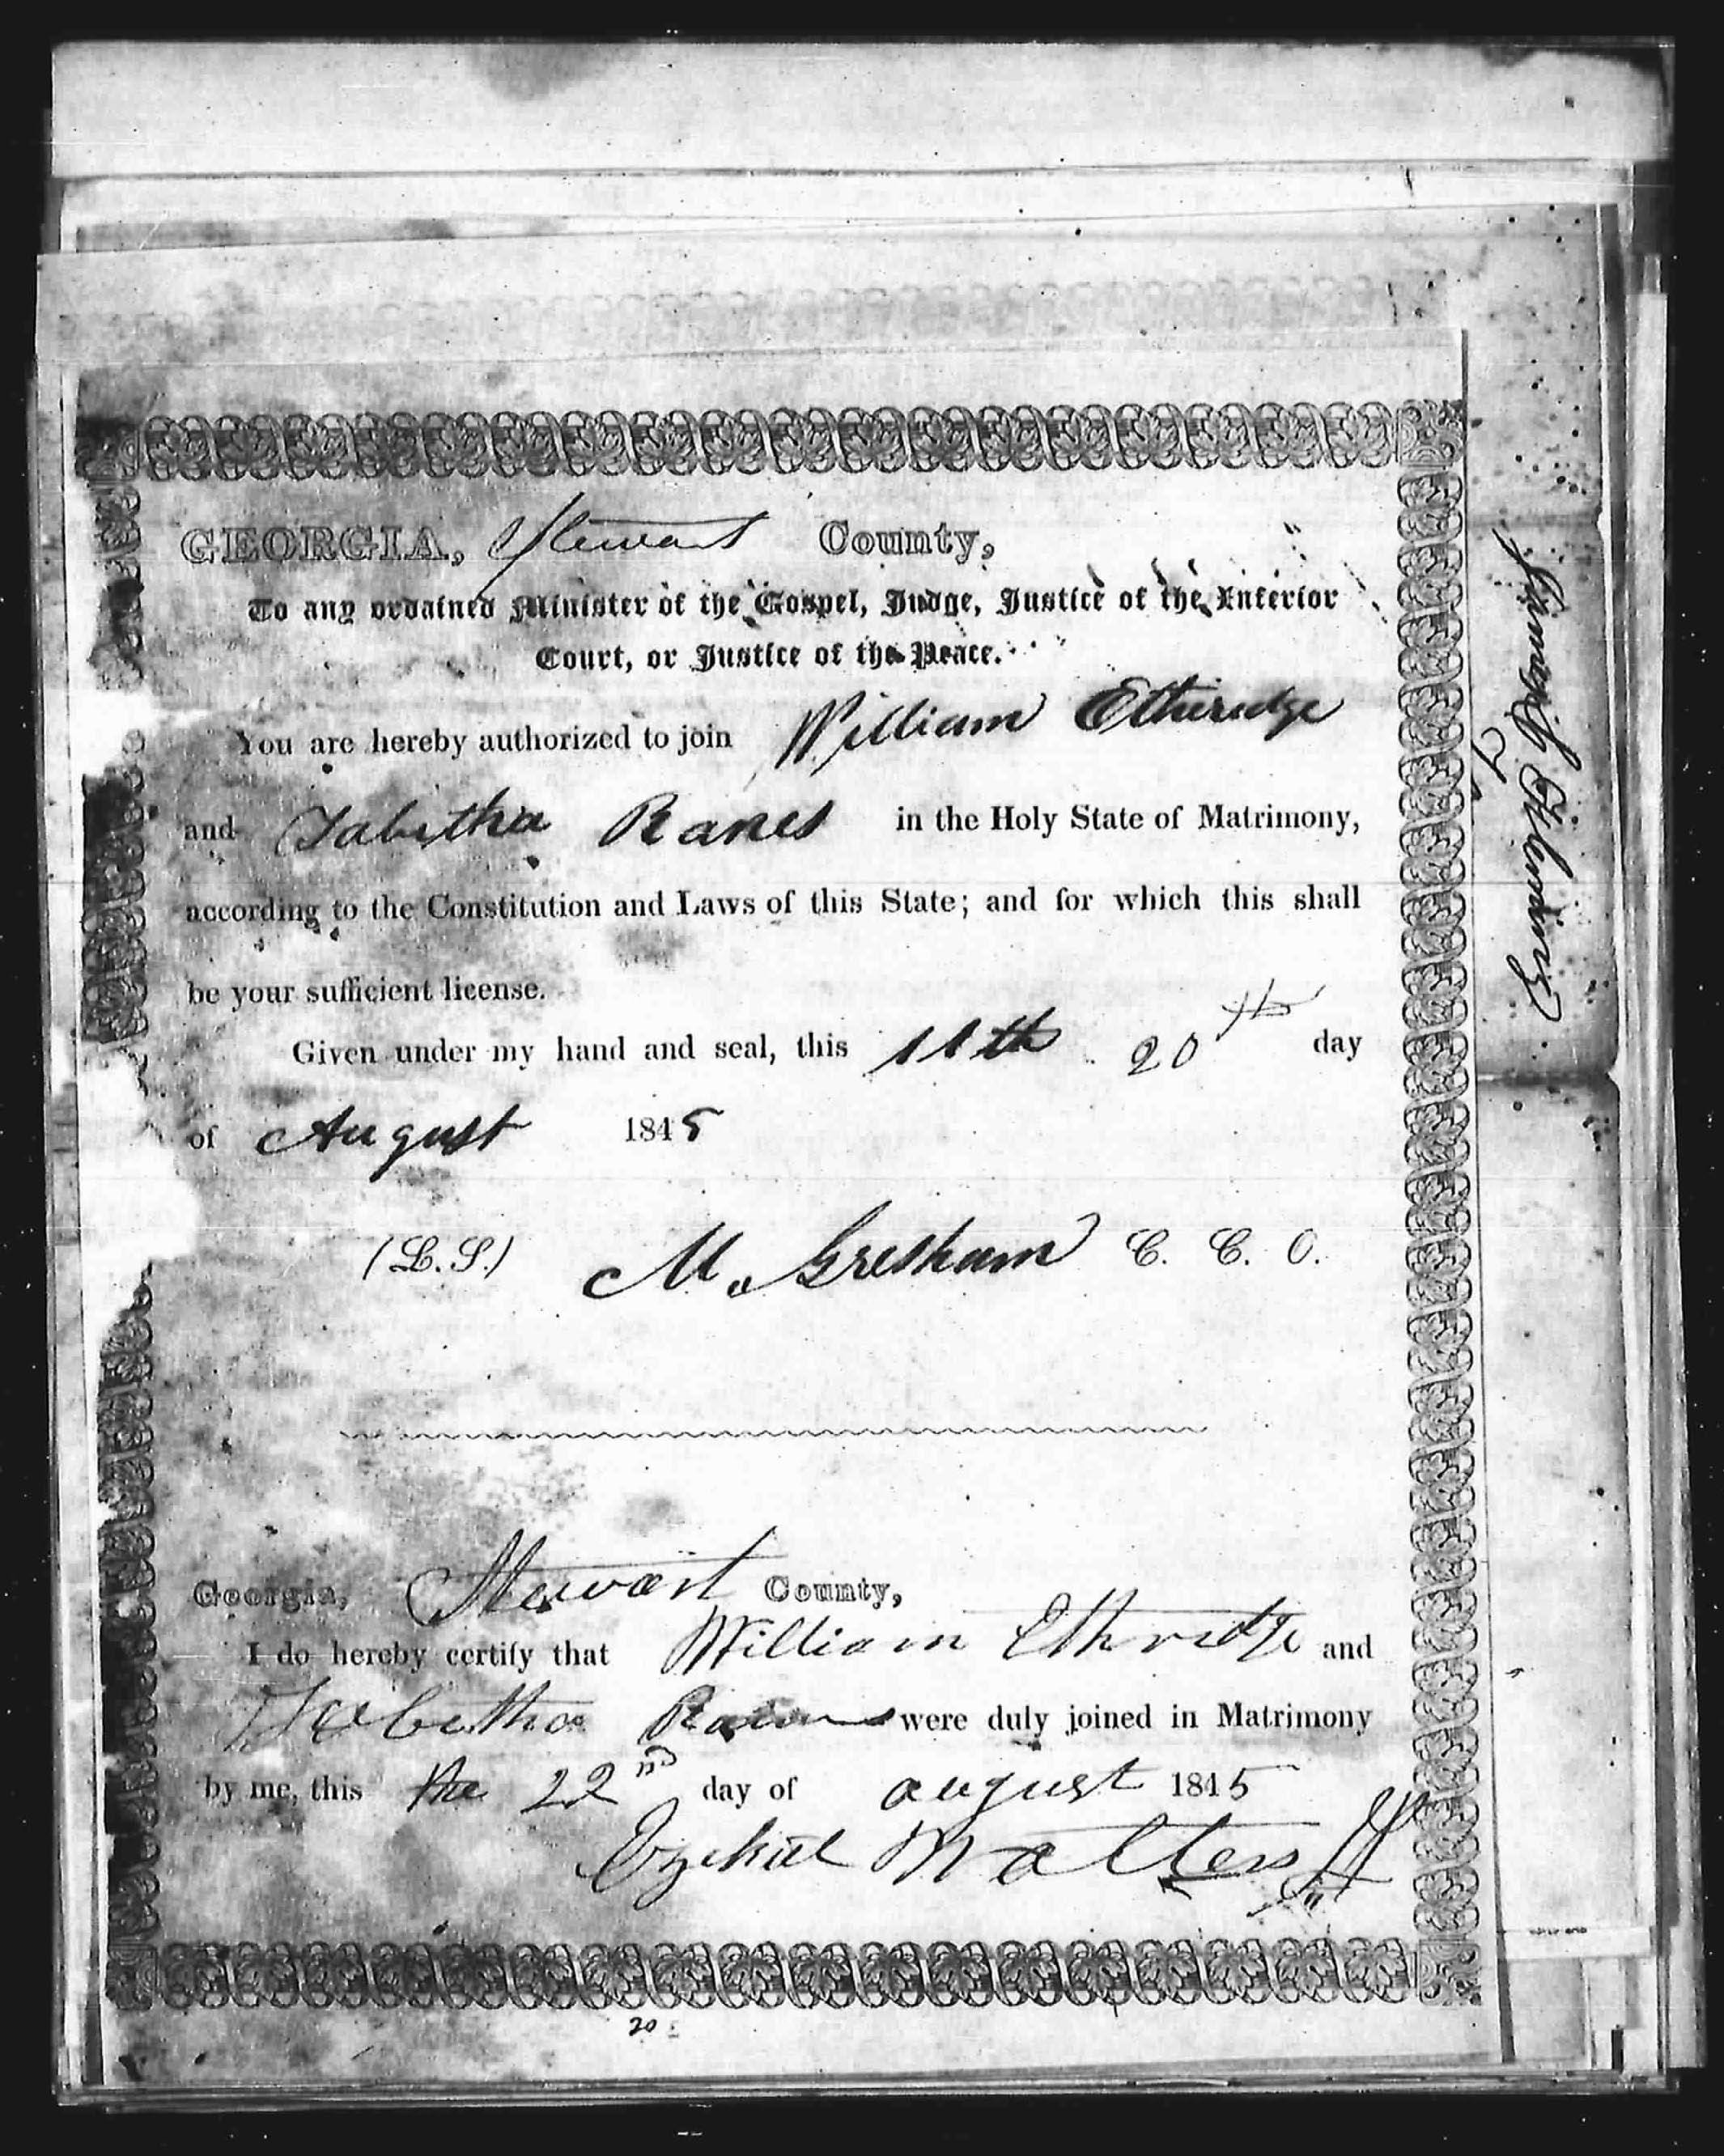 GEORGIA, Stewart County,
To any ordained Minister of the Gospel, Judge, Justice of the Inferior
Court, or Justice of the Peace.
You are hereby authorized to join William Etheridge
and Tabitha Ranes in the Holy State of Matrimony,
according to the Constitution and Laws of this State; and for which this shall
be your sufficient license.
Given under my hand and seal, this 11th 20th day
of August 1845
(L.S.) M. Gresham C. C. O.
Georgia, Stewart County,
I do hereby certify that William Ethridge and
Tabitha were duly joined in Matrimony
by me, this the 22nd day of august 1845
Ezekiel Walters
20